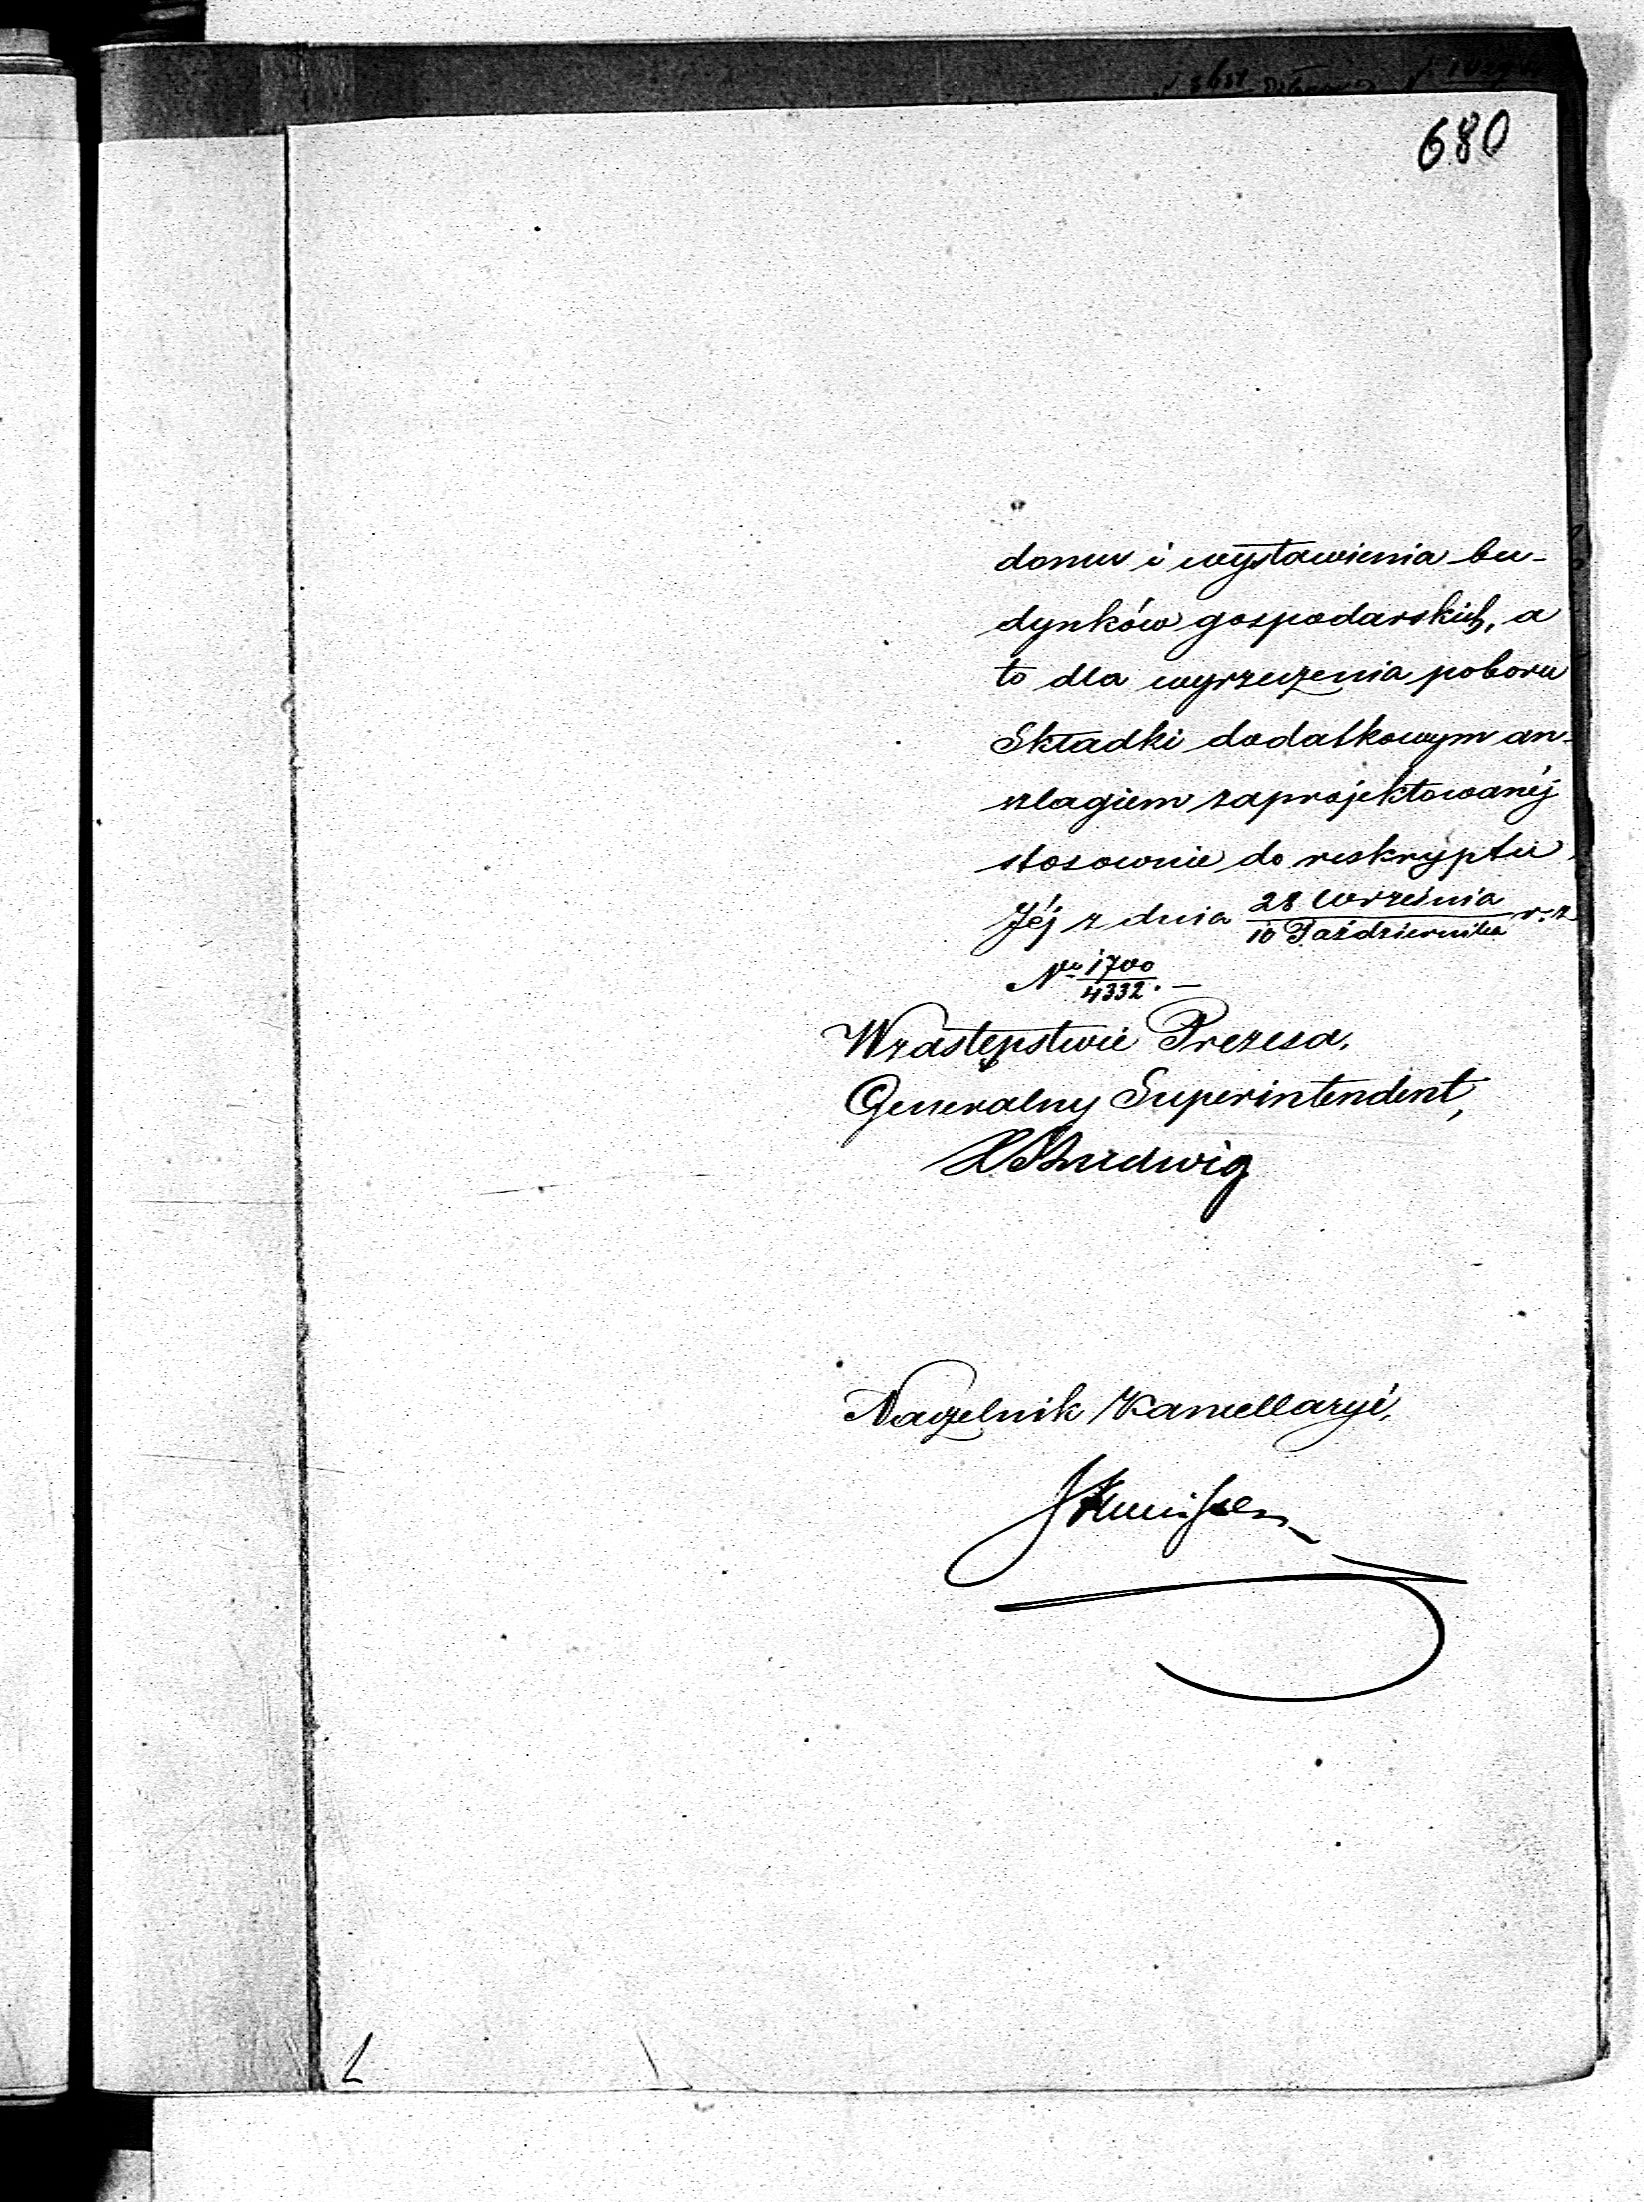 680
domu i wystawienia bu-
dynków gospodarskich, a
to dla wyrzeczenia poboru
Składki dodatkowym an-
szlagiem zaprojektowanéj
stosownie do reskryptu
Jéj z dnia 28 Września / 10 Października r. z
No 1700 / 4332. —
W zastępstwie Prezesa,
Generalny Superintendent,
Ludwig
Naczelnik Kancellaryi,